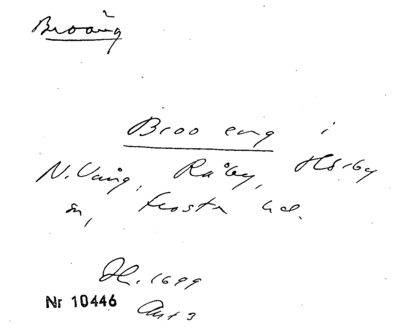 Broäng
Broo eng i
N. Vång, Råby, Hörby
sn, Frosta hd.
Jb. 1699
Nr 10446
Akt 3